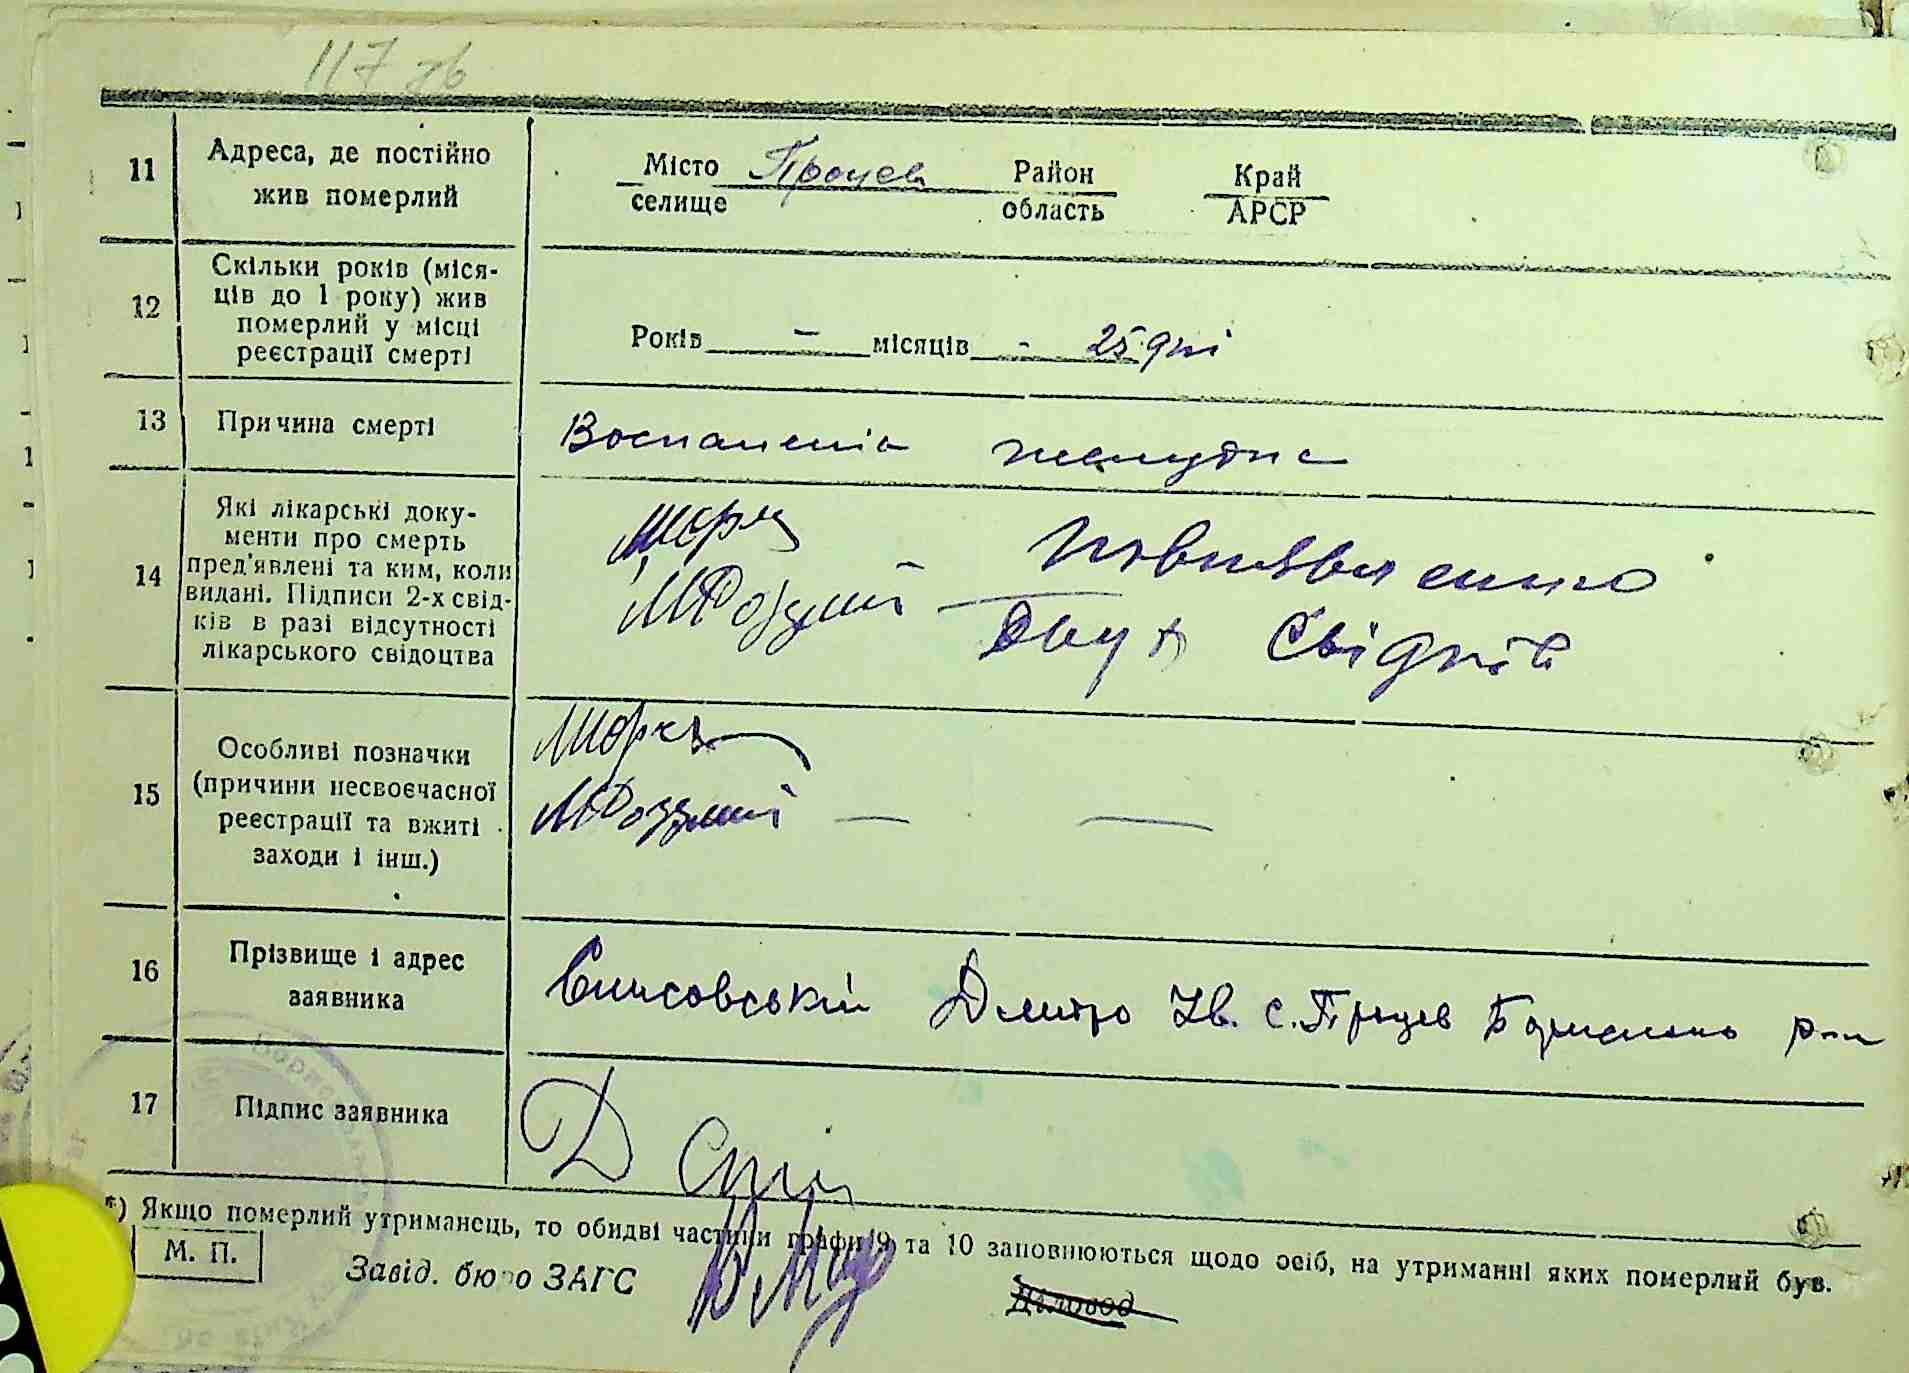 117 зв
11
Адреса, де постійно
жив померлий
Місто Процев Район Край
селище область АРСР
12
Скільки років (міся-
ців до 1 року) жив
померлий у місці
реєстрації смерті
Років – місяців - 25 дні
13
Причина смерті
Воспаленія желудка
14
Які лікарські доку-
менти про смерть
пред'явлені та ким, коли
видані. Підписи 2-х свід-
ків в разі відсутності
лікарського свідоцтва
двух свідків
15
Особливі позначки
(причини несвоєчасної
реєстрації та вжиті
заходи і інш.)
— —
16
Прізвище і адрес
заявника
Дмитро Ів. с. Процев р-н
17
Підпис заявника
Д
*) Якщо померлий утриманець, то обидві частини графи 9 та 10 заповнюються щодо осіб, на утриманні яких померлий був.
М. П.
Завід. бюро ЗАГС
Діловод